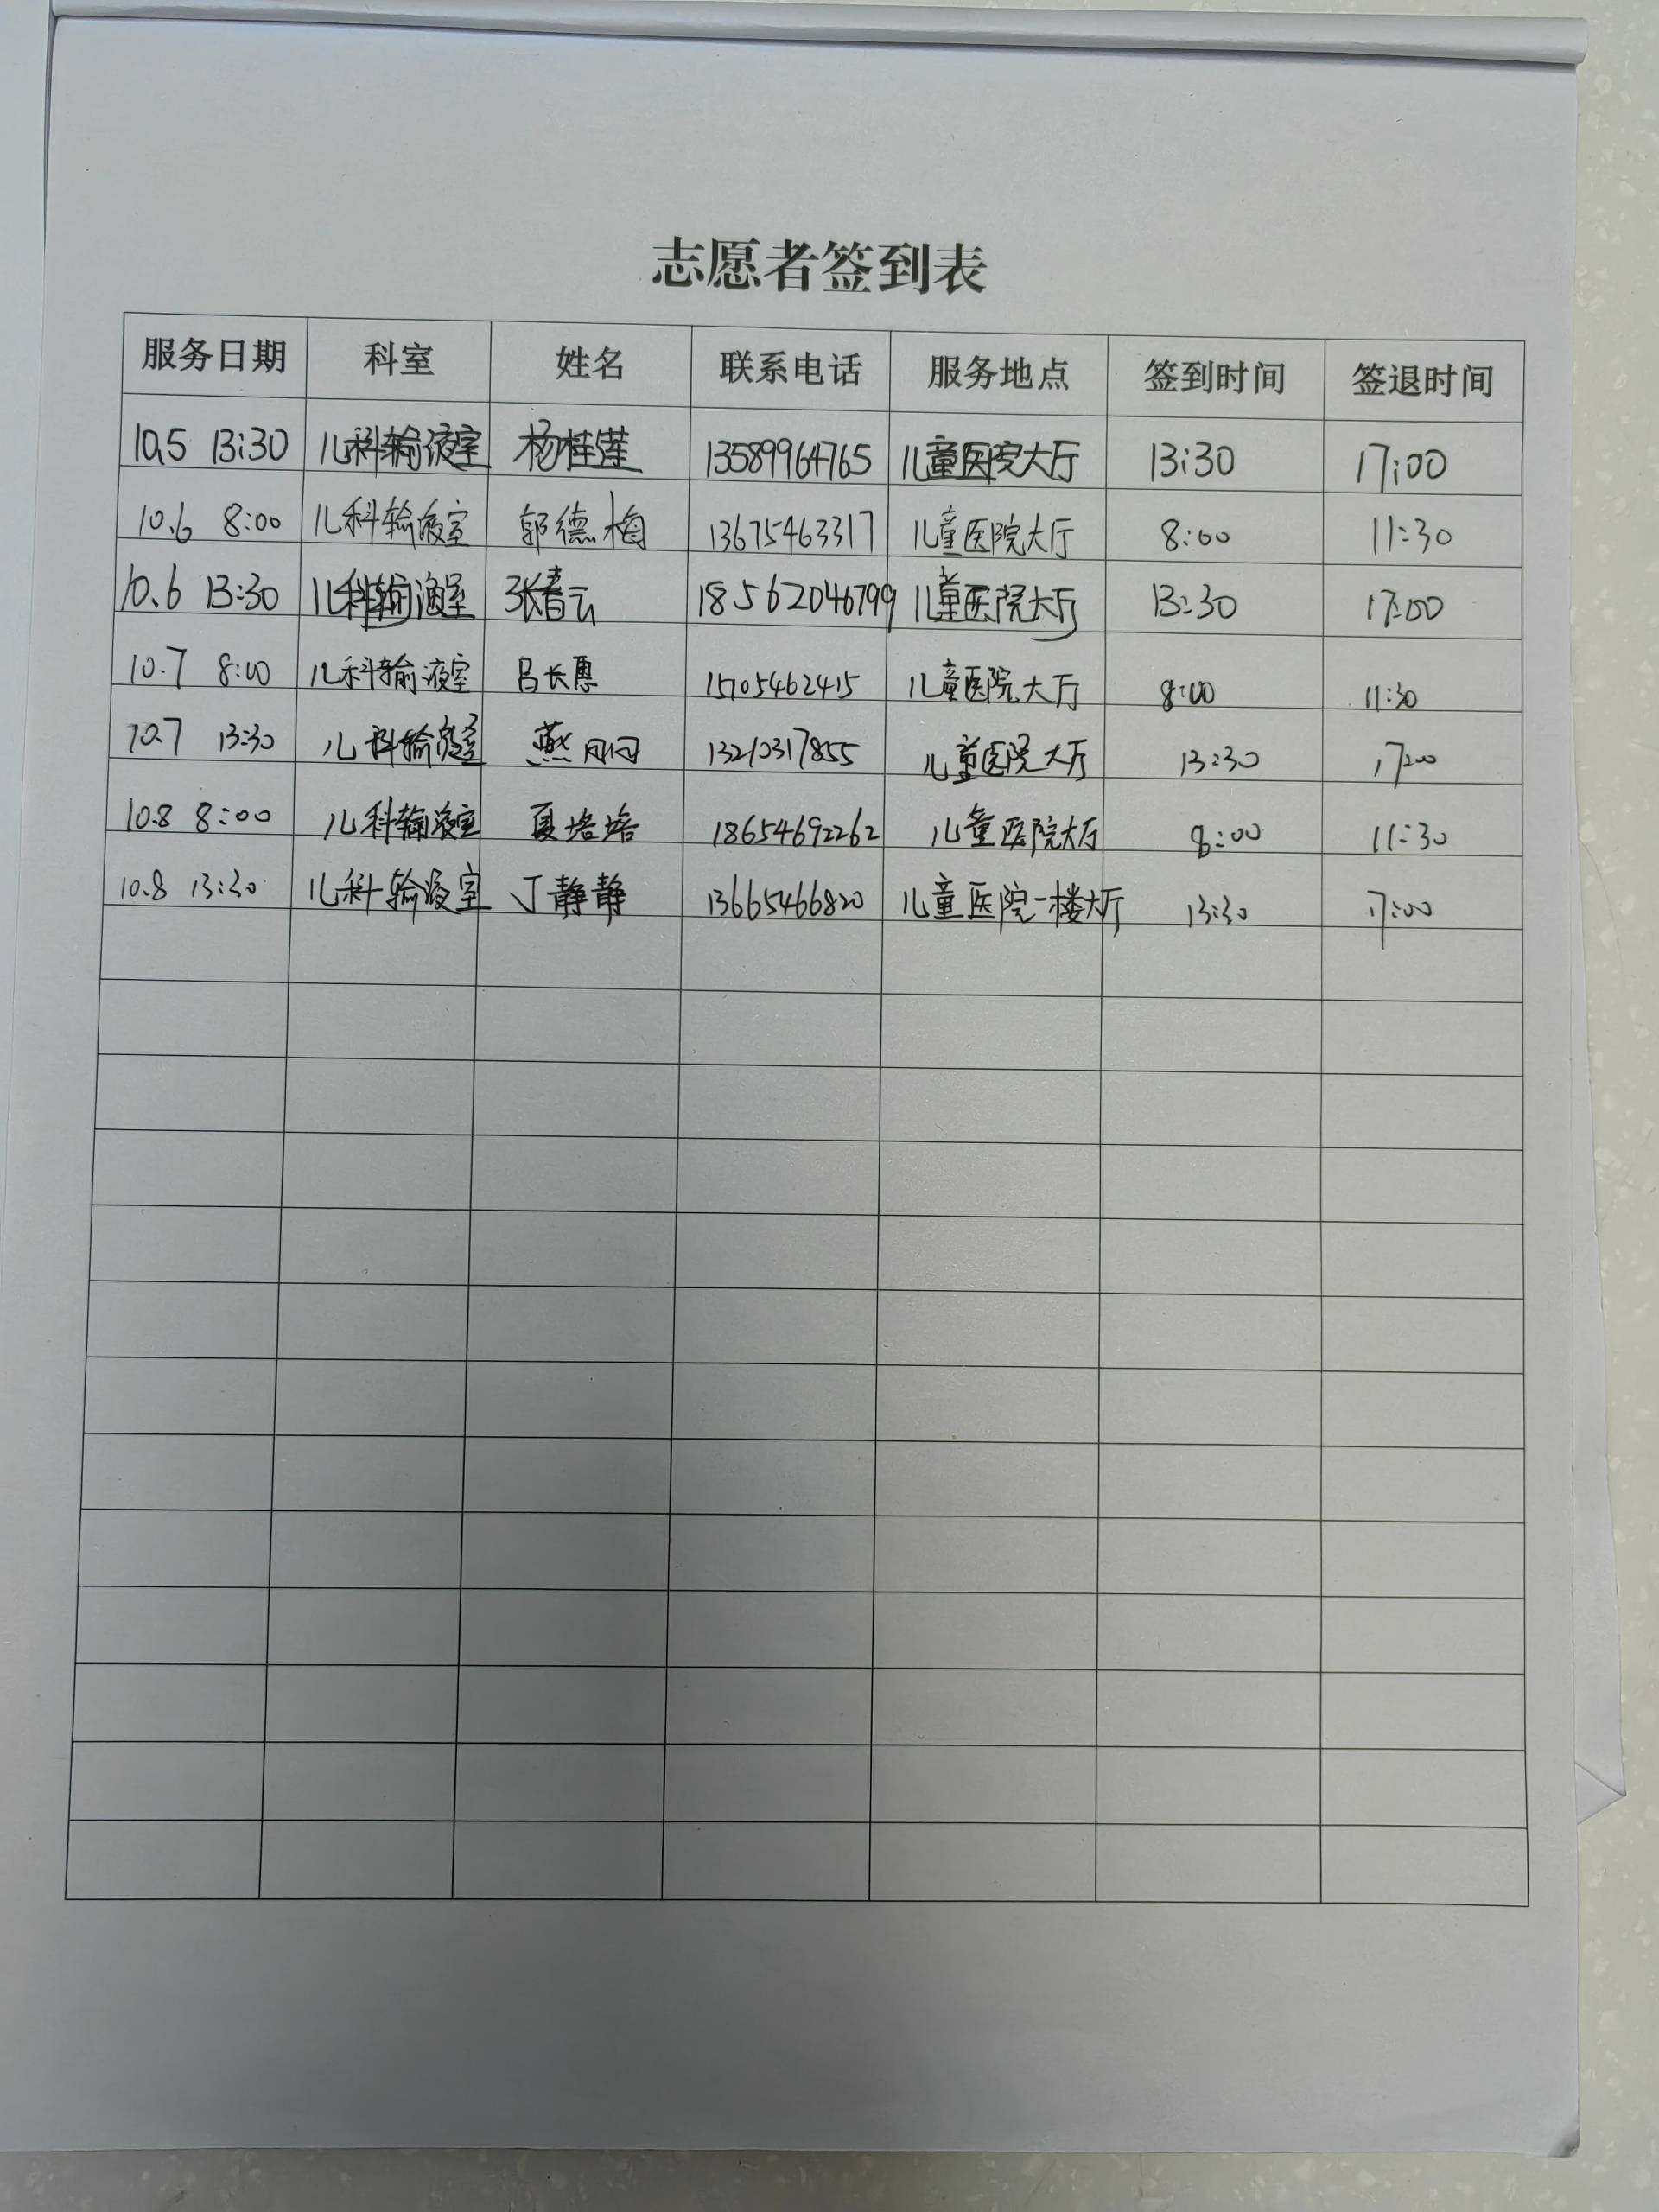 志愿者签到表
服务日期 科室 姓名 联系电话 服务地点 签到时间 签退时间
10.5 13:30 儿科输液室 杨桂莲 13589964765 儿童医院大厅 13:30 17:00
10.6 8:00 儿科输液室 郭德梅 13675463317 儿童医院大厅 8:00 11:30
10.6 13:30 儿科输液室 张春云 18562046799 儿童医院大厅 13:30 17:00
10.7 8:00 儿科输液室 吕长惠 15105462415 儿童医院大厅 8:00 11:30
10.7 13:30 儿科输液室 燕 13210317855 儿童医院大厅 13:30 17:00
10.8 8:00 儿科输液室 夏培培 18654692262 儿童医院大厅 8:00 11:30
10.8 13:30 儿科输液室 丁静静 13665466820 儿童医院一楼大厅 13:30 17:00